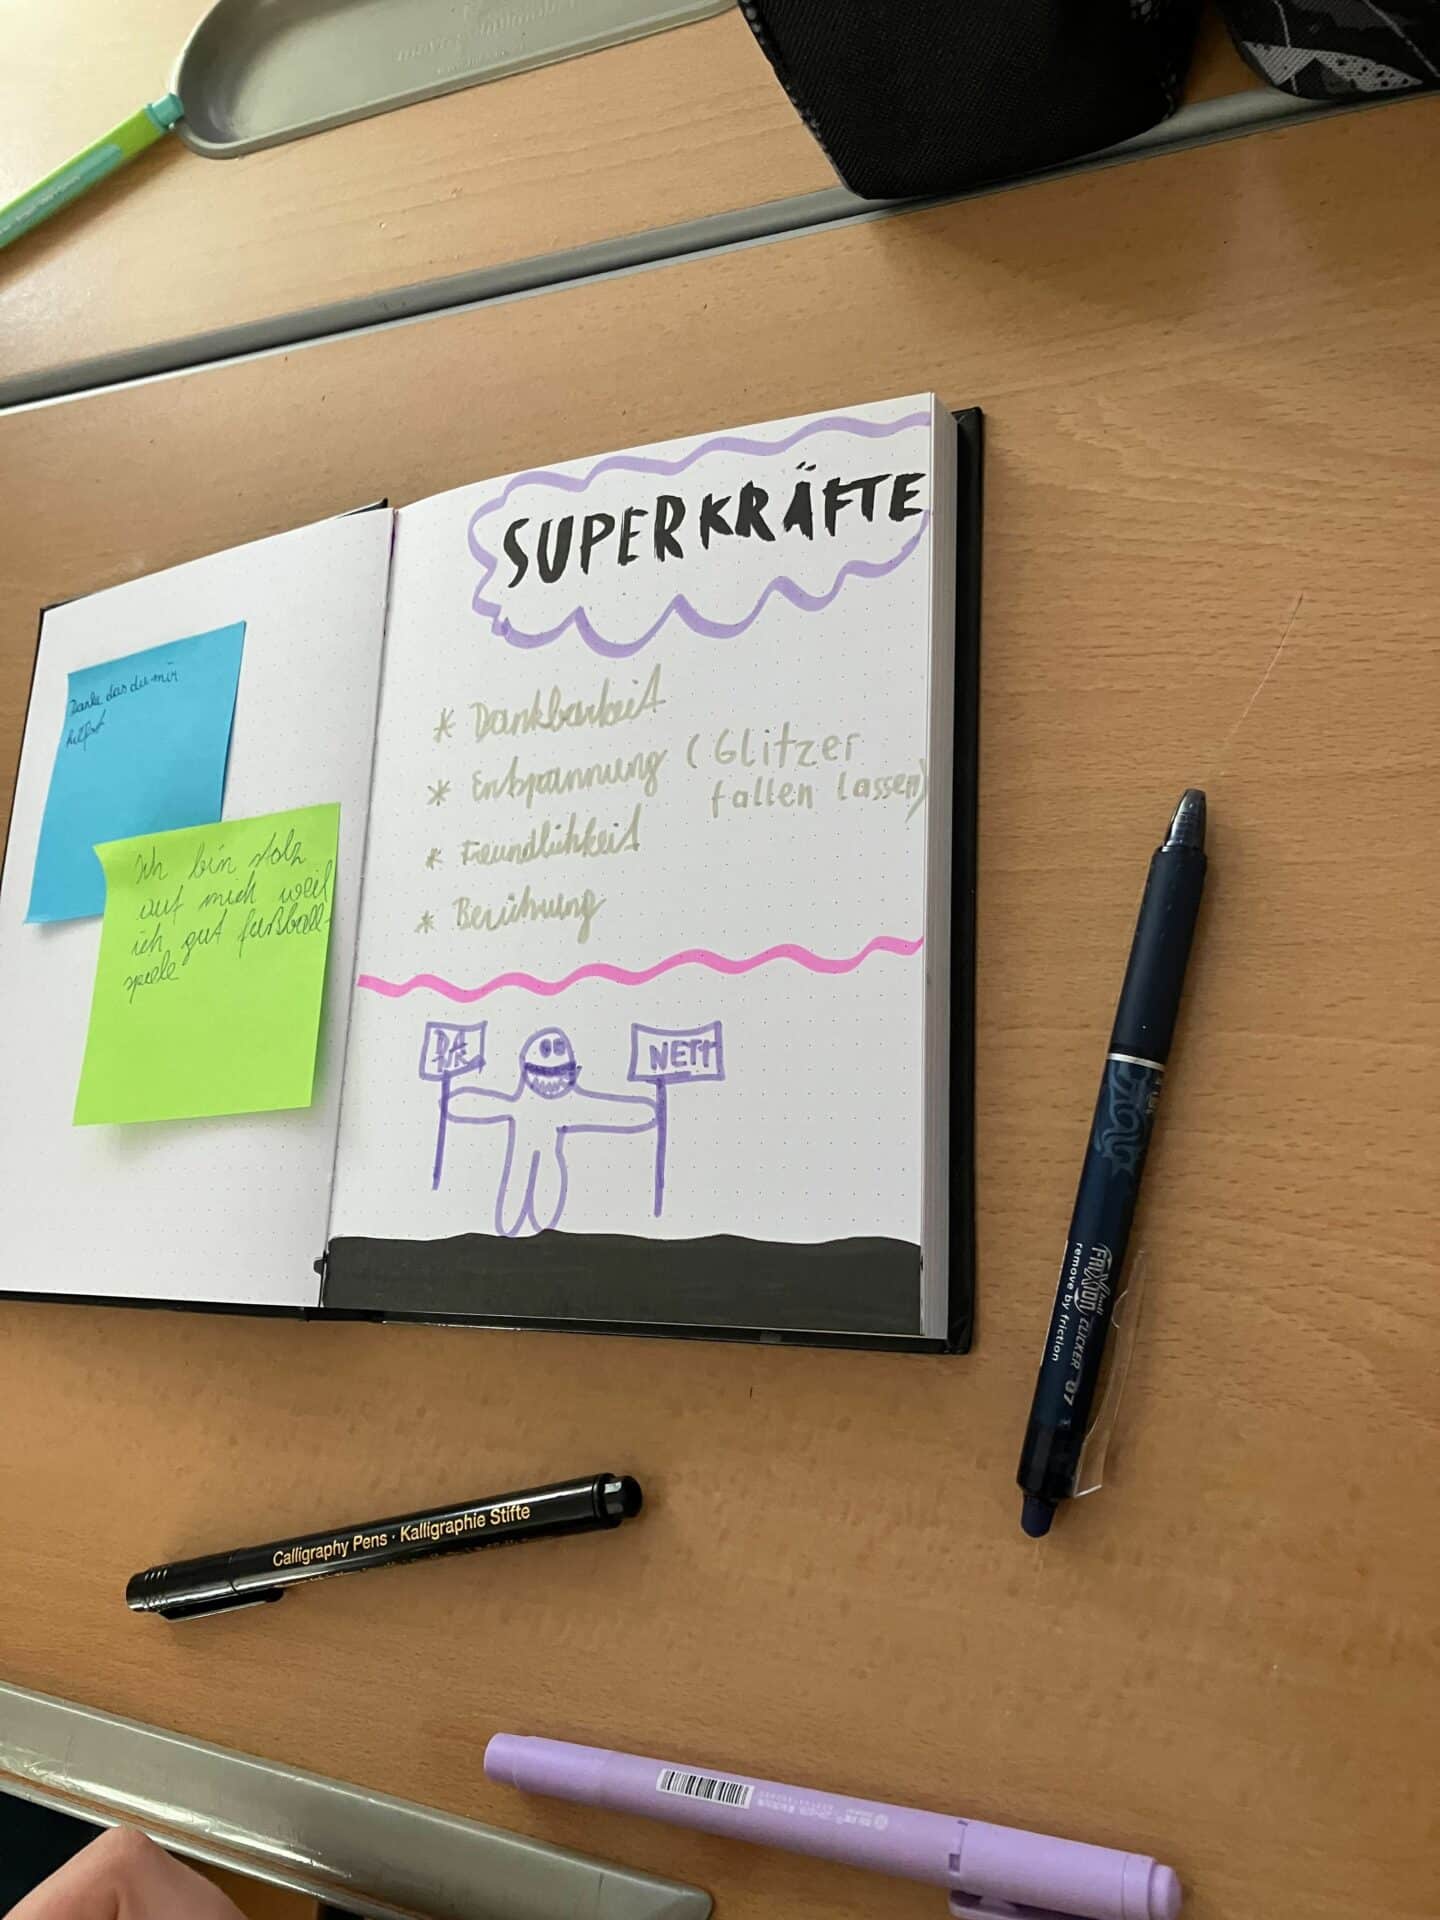 Danke das du mir
hilfst
Ich bin stolz
auf mich weil
ich gut fußball-
spiele
SUPERKRÄFTE
* Dankbarkeit
* Entspannung (Glitzer
fallen lassen)
* Freundlichkeit
* Berührung
NETT
FriXion Ball
CLICKER 07
remove by friction
Calligraphy Pens · Kalligraphie Stifte